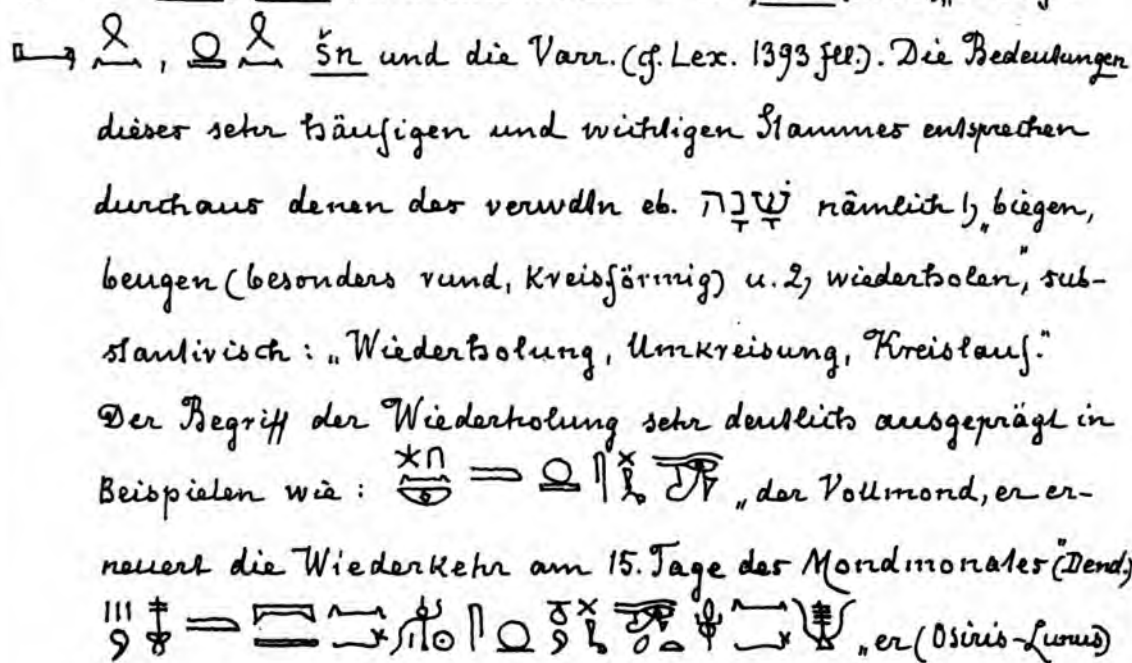 , šn und die Varr. (cf. Lex. 1393 fll.). Die Bedeutungen
dieses sehr häufigen und wichtigen Stammes entsprechen
durchaus denen des verwdtn eb. שָׁנָה nämlich 1, „biegen,
beugen (besonders rund, kreisförmig) u. 2, wiederholen“, sub-
stantivisch: „Wiederholung, Umkreisung, Kreislauf.“
Der Begriff der Wiederholung sehr deutlich ausgeprägt in
Beispielen wie: „der Vollmond, er er-
neuert die Wiederkehr am 15. Tage des Mondmonates“ (Dend.)
„er (Osiris-Lunus)